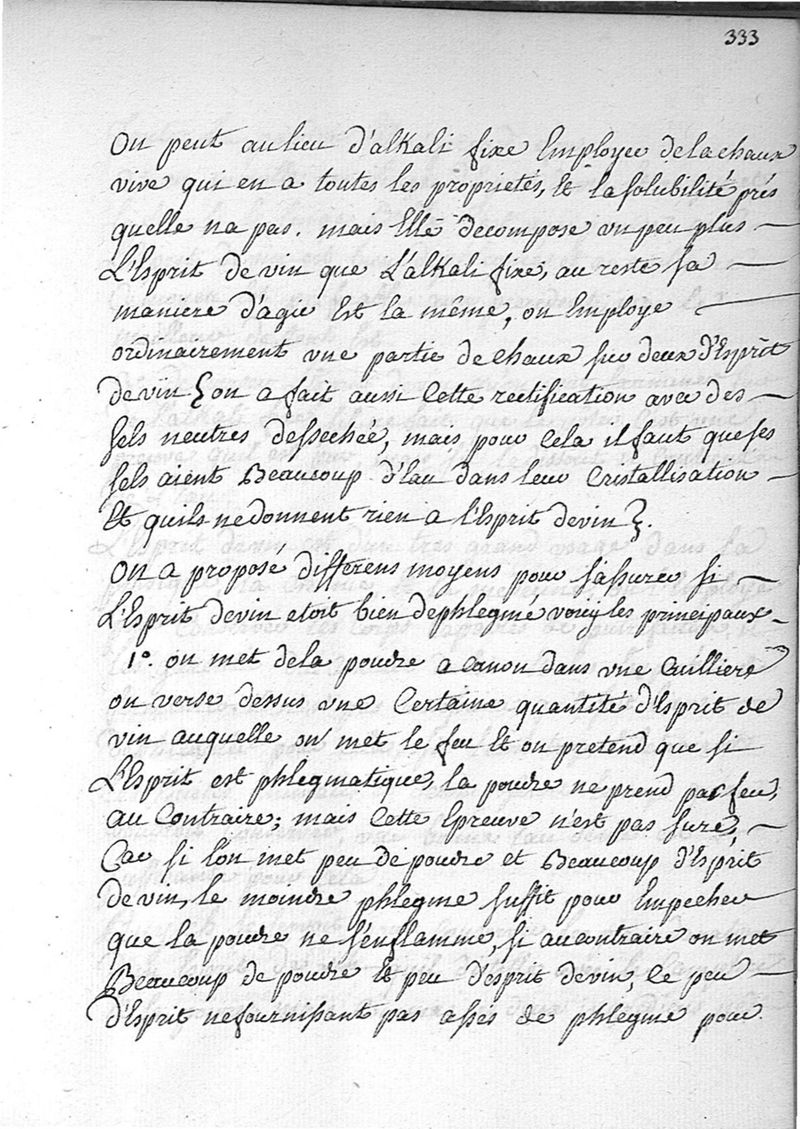 333
On peut au lieu d'alkali fixe Employer de la chaux
vive qui en a toutes les proprietés, Et la solubilité prés
quelle na pas. mais Elle decompose un peu plus
L'Esprit de vin que L'alkali fixe, au reste sa
maniere d'agir Est la même, on Employe
ordinairement une partie de chaux sur deux d'Esprit
de vin { on a fait aussi Cette rectification avec des
sels neutres dessechée, mais pour Cela il faut que ses
sels aient Beaucoup d'Eau dans leur Cristallisation
Et quils ne donnent rien a l'Esprit de vin }.
On a propose differens moyens pour s'assurer si
L'Esprit de vin etoit bien dephlegmé voicy les principaux
1°. on met de la poudre a canon dans une Cuilliere
on verse dessus une Certaine quantité d'Esprit de
vin auquelle on met le feu Et on pretend que si
L'Esprit est phlegmatique, la poudre ne prend pas feu,
au Contraire; mais Cette Epreuve n'est pas sure,
Car si l'on met peu de poudre et Beaucoup d'Esprit
de vin, le moindre phlegme suffit pour Empecher
que la poudre ne s'enflamme, si au contraire on met
Beaucoup de poudre Et peu d'esprit de vin, le peu
d'Esprit ne fournissant pas assés de phlegme pour